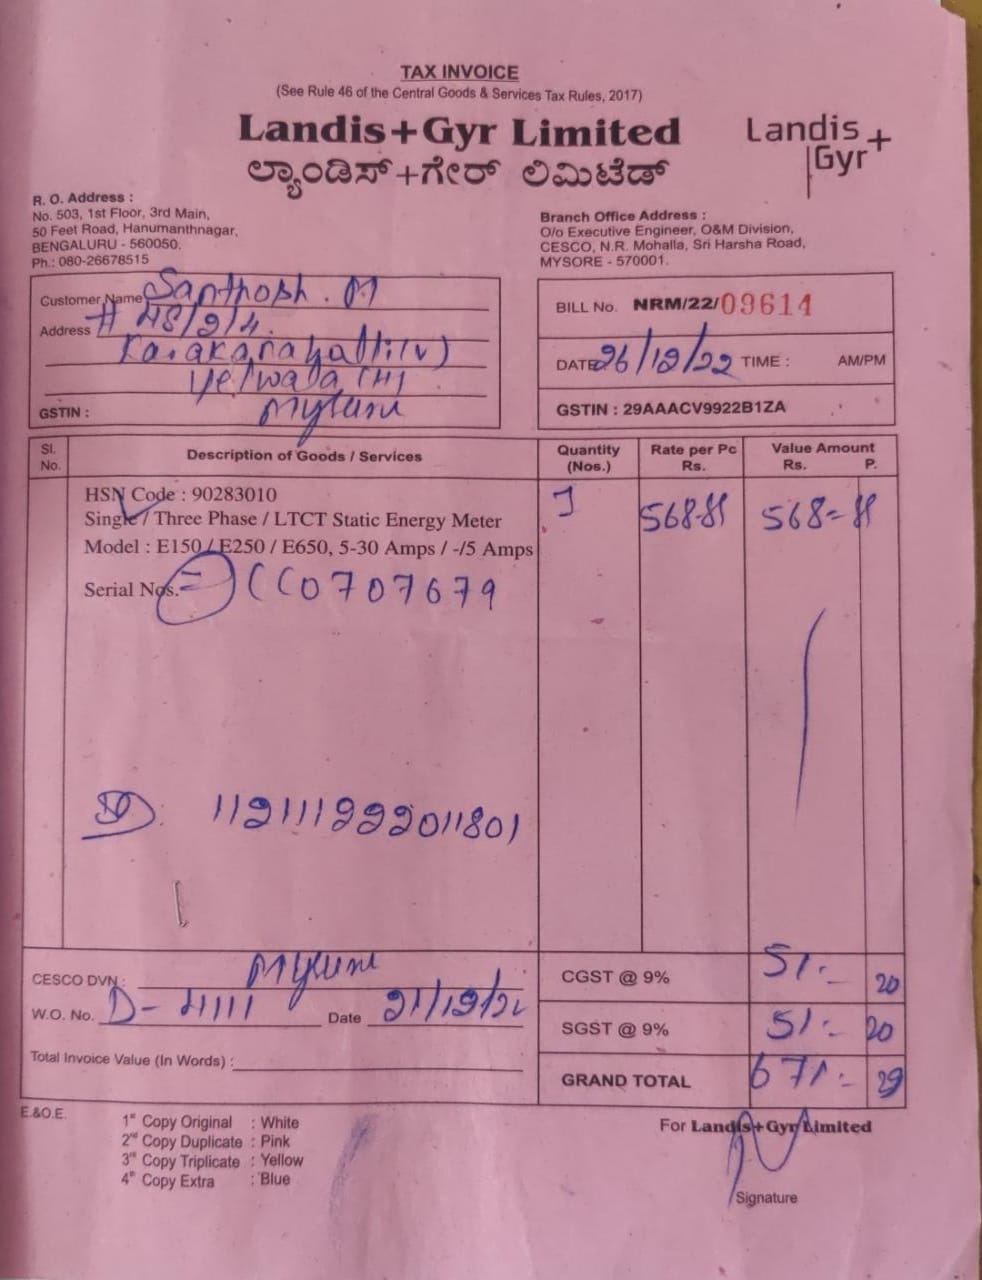 TAX INVOICE
(See Rule 46 of the Central Goods & Services Tax Rules, 2017)
Landis+Gyr Limited
ಲ್ಯಾಂಡಿಸ್+ಗೇರ್ ಲಿಮಿಟೆಡ್
Landis
Gyr+
R. O. Address :
No. 503, 1st Floor, 3rd Main,
50 Feet Road, Hanumanthnagar,
BENGALURU - 560050.
Ph.: 080-26678515
Branch Office Address :
O/o Executive Engineer, O&M Division,
CESCO, N.R. Mohalla, Sri Harsha Road,
MYSORE - 570001.
Customer Name Santhosh . M
Address # 48/2/4.
(H)
GSTIN :
BILL No. NRM/22/09614
DATE 26/12/22 TIME : AM/PM
GSTIN : 29AAACV9922B1ZA
Sl. No. Description of Goods / Services Quantity (Nos.) Rate per Pc Rs. Value Amount Rs. P.
HSN Code : 90283010
Single / Three Phase / LTCT Static Energy Meter 1
Model : E150 / E250 / E650, 5-30 Amps / -/5 Amps
Serial Nos. = CC0707679
CESCO DVN :
W.O. No. Date
CGST @ 9% 51.- 20
SGST @ 9% 51.- 20
Total Invoice Value (In Words) :
GRAND TOTAL 671.- 29
E.&O.E.
1st Copy Original : White
2nd Copy Duplicate : Pink
3rd Copy Triplicate : Yellow
4th Copy Extra : Blue
For Landis+Gyr Limited
Signature